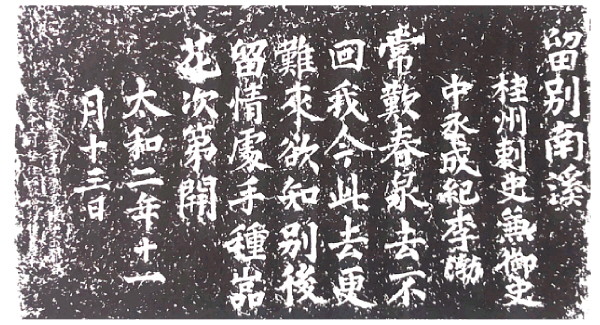 留别南溪
桂州刺史兼御史
中丞成紀李渤
常歎春泉去不
回我今此去更
難來欲知别後
留情處手種嵓
花次第開
太和二年十一
月十三日